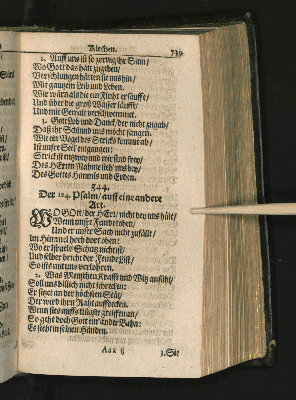 Kirchen. 739
2. Auff uns ist so zornig ihr Sinn/
Wo Gott das hätt zugeben/
Verschlungen hätten sie uns hin/
Mit gantzem Leib und Leben.
Wir wärn als die ein Fluht ersäufft/
Und über die groß Wasser läufft/
Und mit Gewalt verschwemmet.
3. Gott Lob und Danck/ der nicht zugab/
Daß ihr Schlund uns möcht fangen.
Wie ein Vogel des Stricks kommt ab/
Ist unser Seel entgangen:
Strick ist entzwey und wir sind frey/
Des HErren Nahme steh uns bey/
Des Gottes Himmels und Erden.
544.
Der 124. Psalm/ auff eine andere
Art.
WO GOtt/ der HErr/ nicht bey uns hält/
Wenn unsre Feinde toben/
Und er unsrer Sach nicht zufällt/
im Himmel hoch dort oben:
Wo er Israels Schutz nicht ist/
Und selber bricht der Feinde List/
So ists mit uns verlohren.
2. Was Menschen Krafft und Witz anfäht/
Soll uns billich nicht schrecken:
Er sitzet an der höchsten Stät/
Der wird ihrn Raht auffdecken.
Wenn sies auffs klügste greiffen an/
So geht doch Gott ein andre Bahn:
Es steht in seinen Händen.
Aaa ij 3. Sie